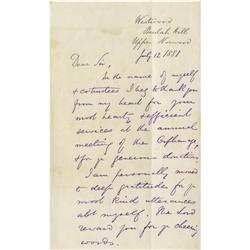 Westwood
Beulah Hill
Upper Norwood
July 12 1881
Dear Sir,
In the name of myself
& cotrustees I beg to thank you
from my heart for your
most hearty & efficient
services at the annual
meeting of the Orphanage,
& for yr generous donation.
I am personally moved
to deep gratitude for yr
most kind utterances
abt myself. The Lord
reward you for yr cheering
words.